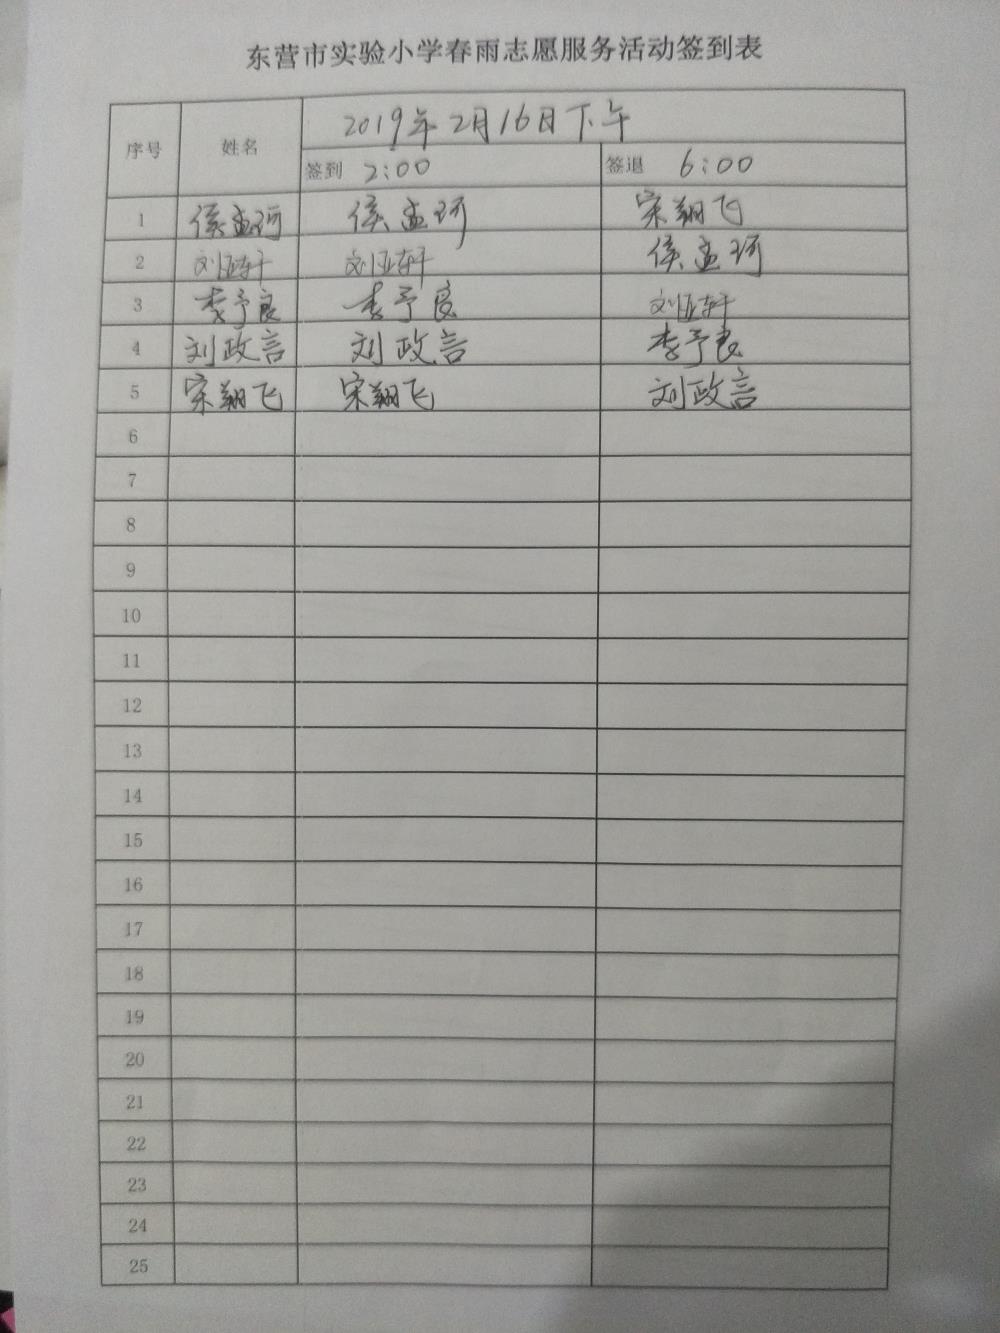 东营市实验小学春雨志愿服务活动签到表
序号 姓名 2019年2月16日下午
签到 2:00 签退 6:00
1 侯孟珂 侯孟珂 宋翔飞
2 刘亚轩 刘亚轩 侯孟珂
3 李予良 李予良 刘亚轩
4 刘政言 刘政言 李予良
5 宋翔飞 宋翔飞 刘政言
6
7
8
9
10
11
12
13
14
15
16
17
18
19
20
21
22
23
24
25